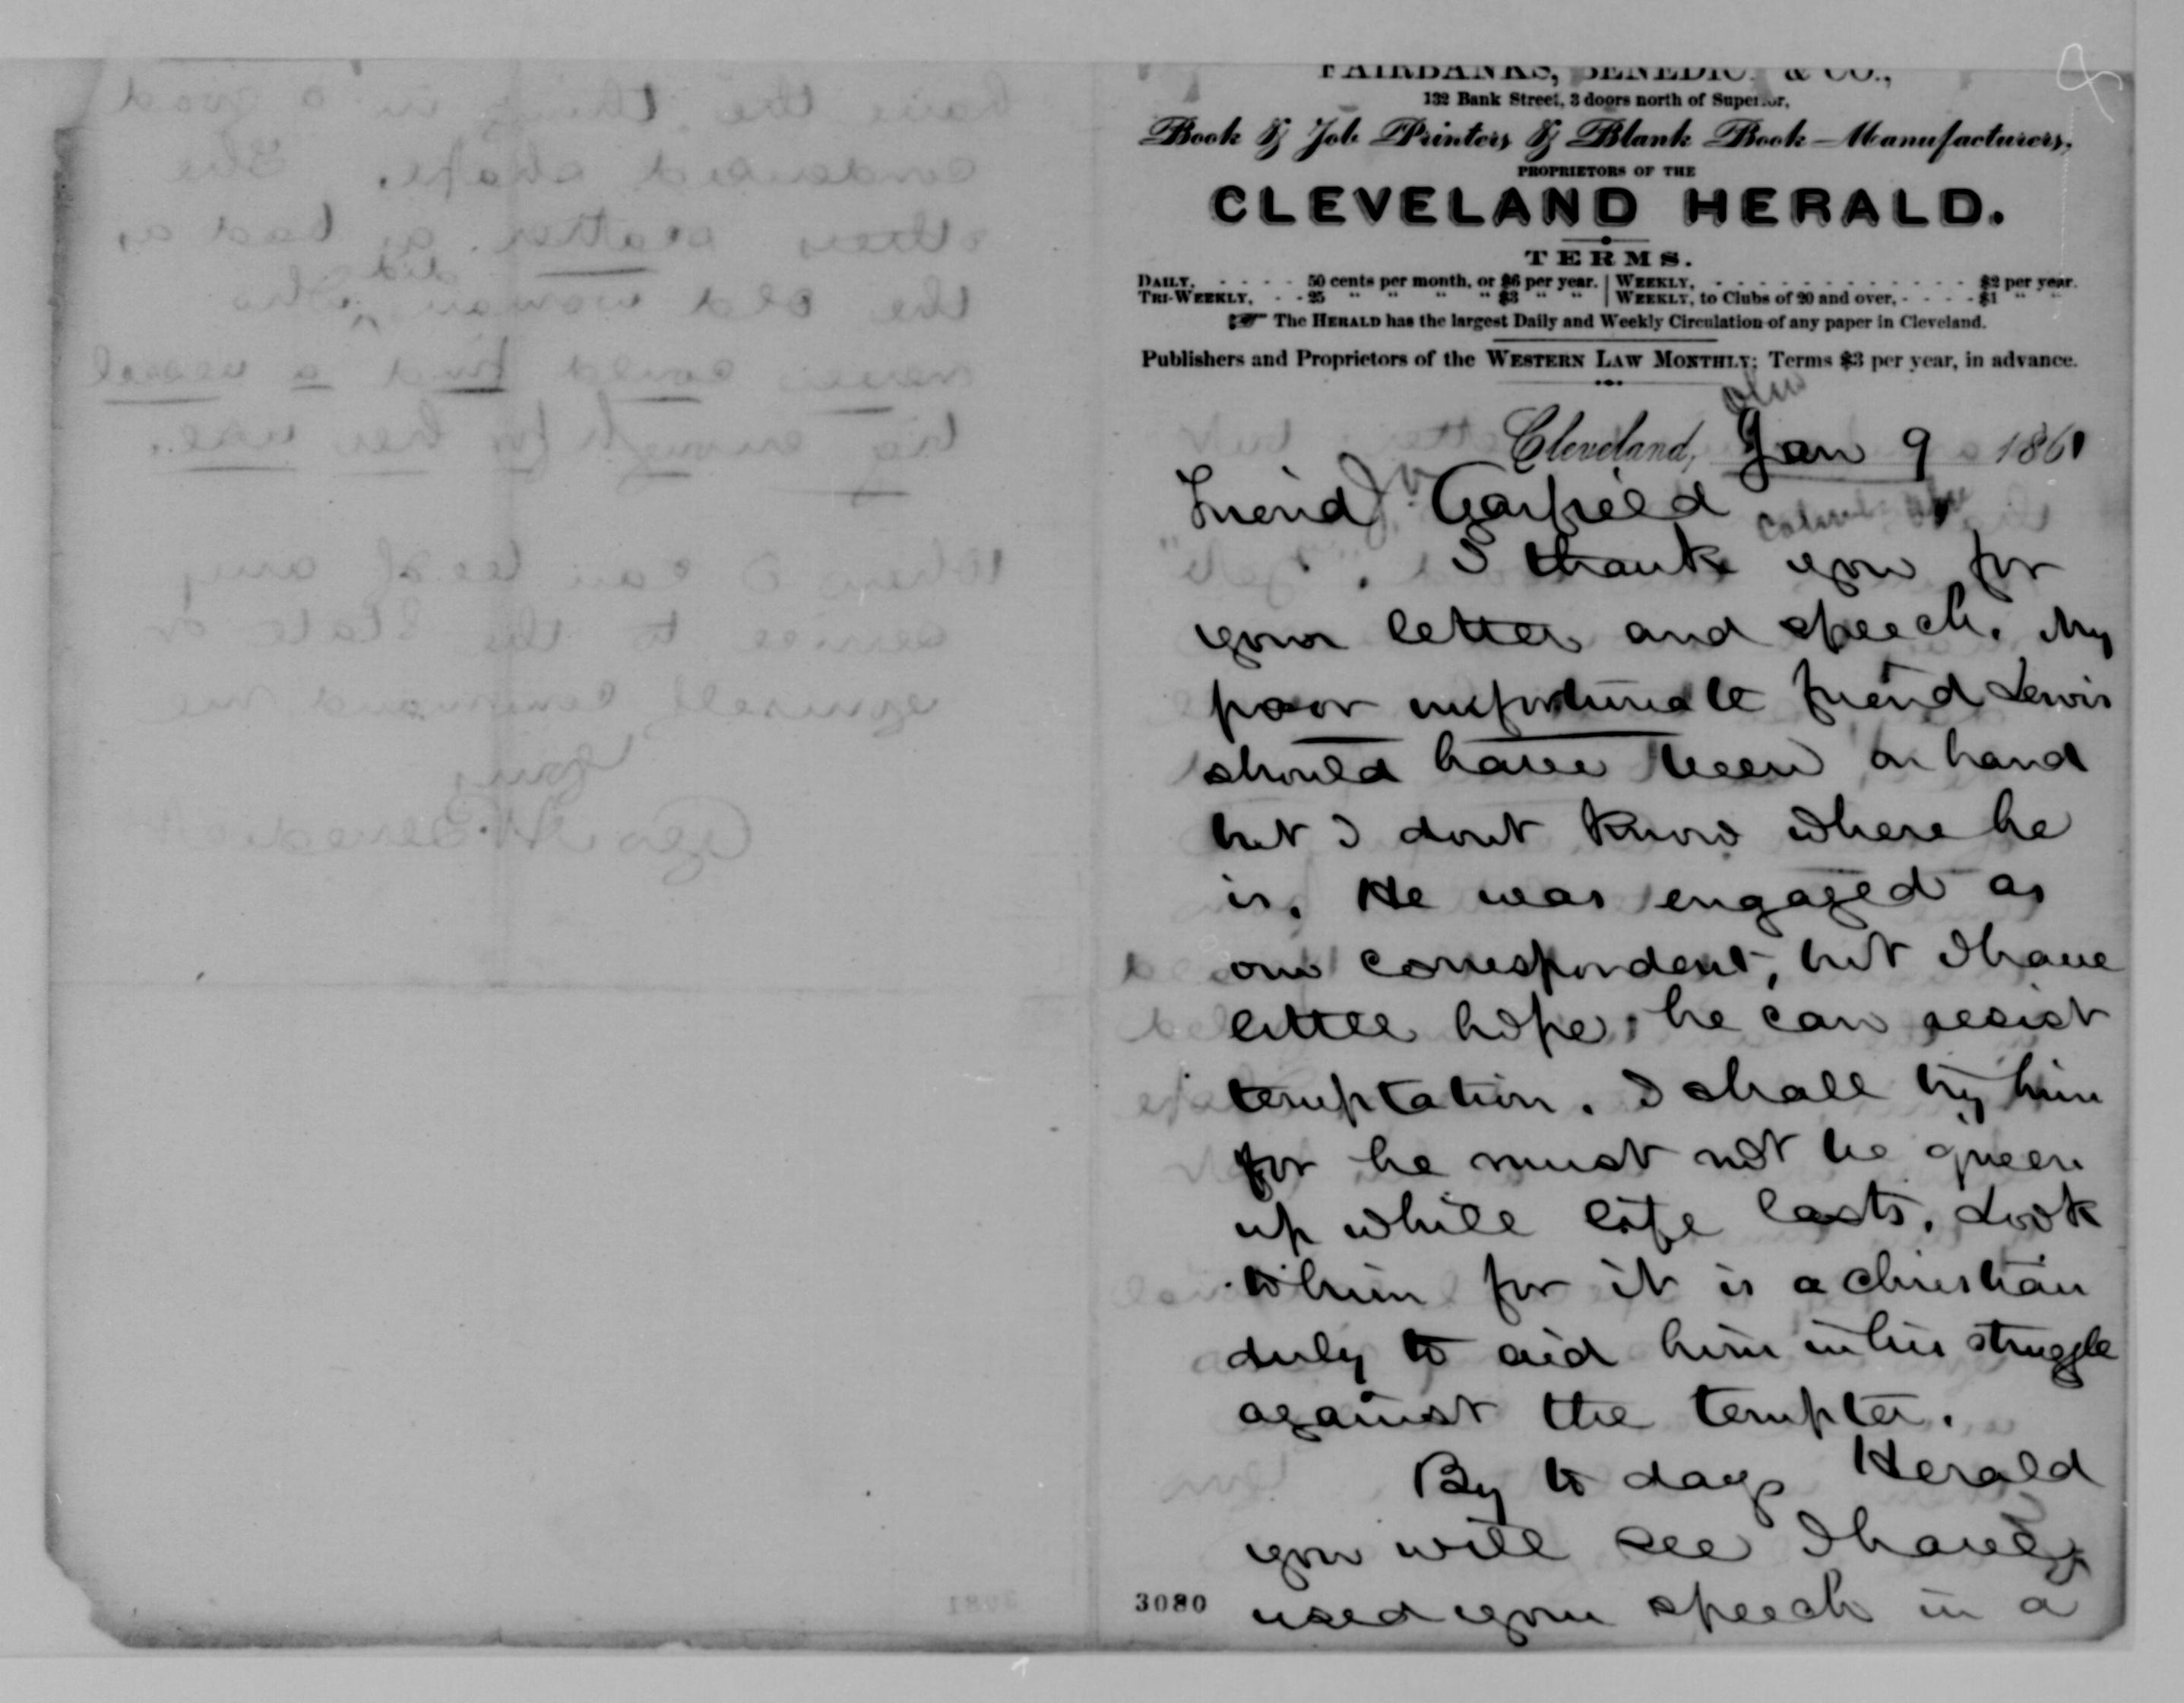 FAIRBANKS, BENEDICT & CO.,
132 Bank Street, 3 doors north of Superior,
Book & Job Printers & Blank Book Manufacturers,
PROPRIETORS OF THE
CLEVELAND HERALD.
TERMS.
DAILY, - - - - 50 cents per month, or $6 per year. | WEEKLY, - - - - - - - - - - - $2 per year.
TRI-WEEKLY, - - 25 " " " " $3 " " | WEEKLY, to Clubs of 20 and over, - - - - $1 " "
☞ The HERALD has the largest Daily and Weekly Circulation of any paper in Cleveland.
Publishers and Proprietors of the WESTERN LAW MONTHLY; Terms $3 per year, in advance.
Ohio
Cleveland, Jan 9 1861
Friend Garfield
I thank you for
your letter and speech. My
poor unfortunate friend Lewis
should have been on hand
but I dont know where he
is. He was engaged as
our correspondent, but I have
little hope he can resist
temptation. I shall try him
for he must not be given
up while life lasts. Look
to him for it is a christian
duty to aid him in his struggle
against the tempter.
By to days Herald
you will see I have
used your speech in a
3080
have the thing in a good
condensed shape. The
others scatter as bad as
the old woman did who
never could find a vessel
big enough for her use.
When I can be of any
service to the State or
yourself command me
Yours
Geo. A. Benedict
3081